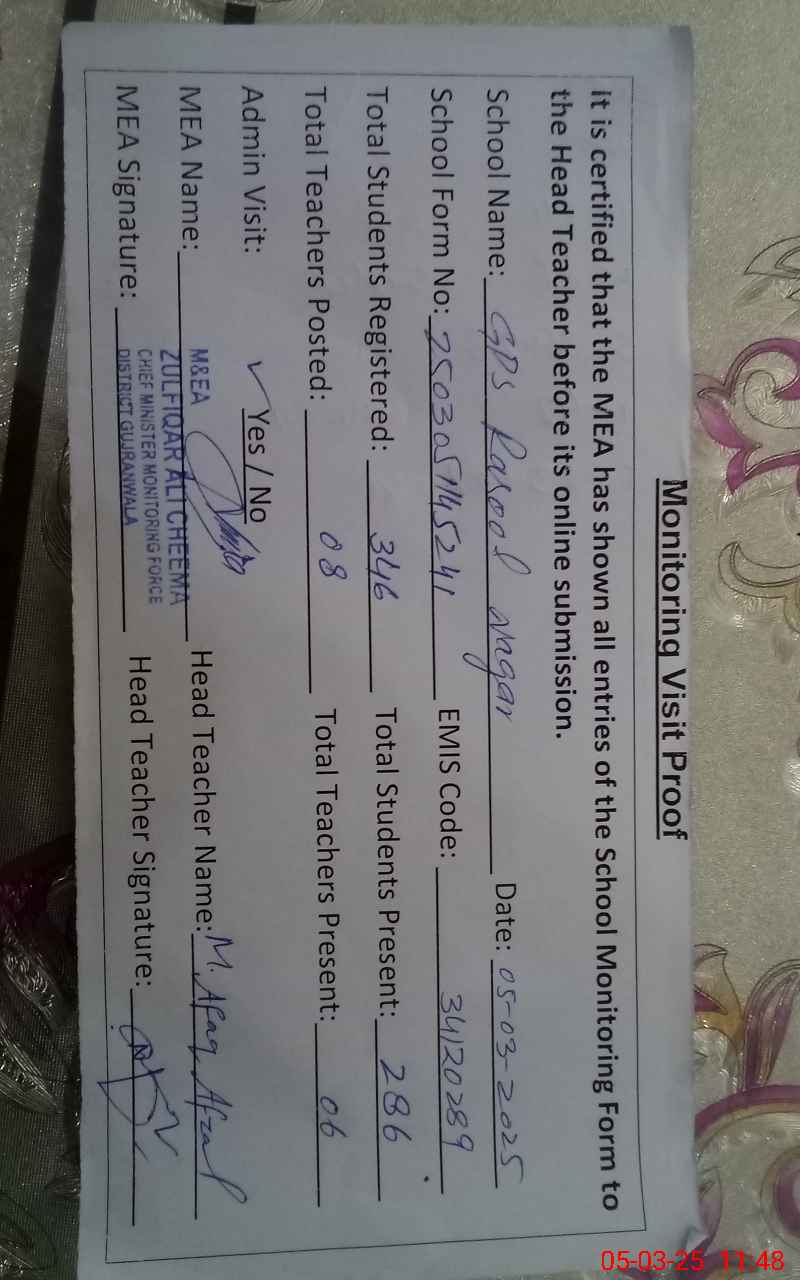 Monitoring Visit Proof
It is certified that the MEA has shown all entries of the School Monitoring Form to
the Head Teacher before its online submission.
School Name: GPS Rasool Nagar Date: 05-03-2025
School Form No: 250305145241 EMIS Code: 34120289
Total Students Registered: 346 Total Students Present: 286
Total Teachers Posted: 08 Total Teachers Present: 06
Admin Visit: ✓ Yes / No
MEA Name: Head Teacher Name: M. Afaq Afzal
MEA Signature: Head Teacher Signature:
M&EA
ZULFIQAR ALI CHEEMA
CHIEF MINISTER MONITORING FORCE
DISTRICT GUJRANWALA
05-03-25 11:48